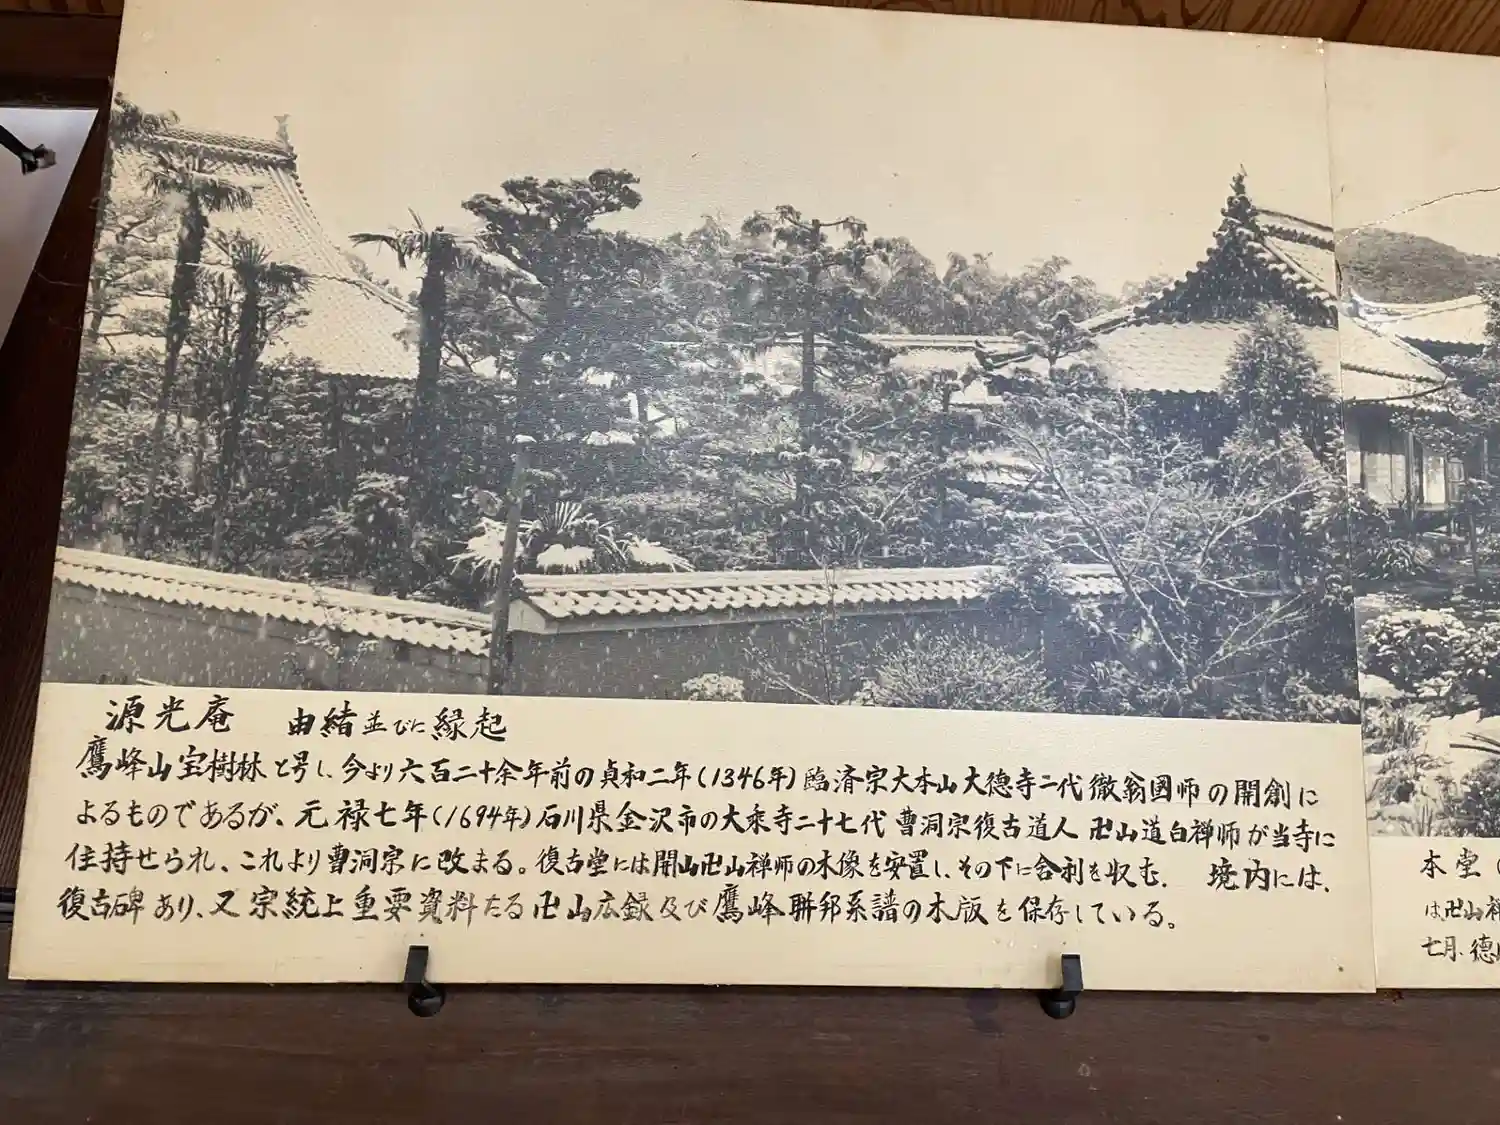 源光庵 由緒並びに縁起
鷹峰山宝樹林と号し、今より六百二十余年前の貞和二年(1346年)臨済宗大本山大徳寺二代徹翁國师の開創に
よるものであるが、元禄七年(1694年)石川県金沢市の大乘寺二十七代 曹洞宗復古道人 卍山道白禅师が当寺に
住持せられ、これより曹洞宗に改まる。復古堂には開山卍山禅师の木像を安置し、その下に舎利を収む. 境内には、
復古碑あり、又宗統上重要資料たる卍山広録及び鷹峰聨邦系譜の木版を保存している。
本堂(
は卍山禅
七月、徳